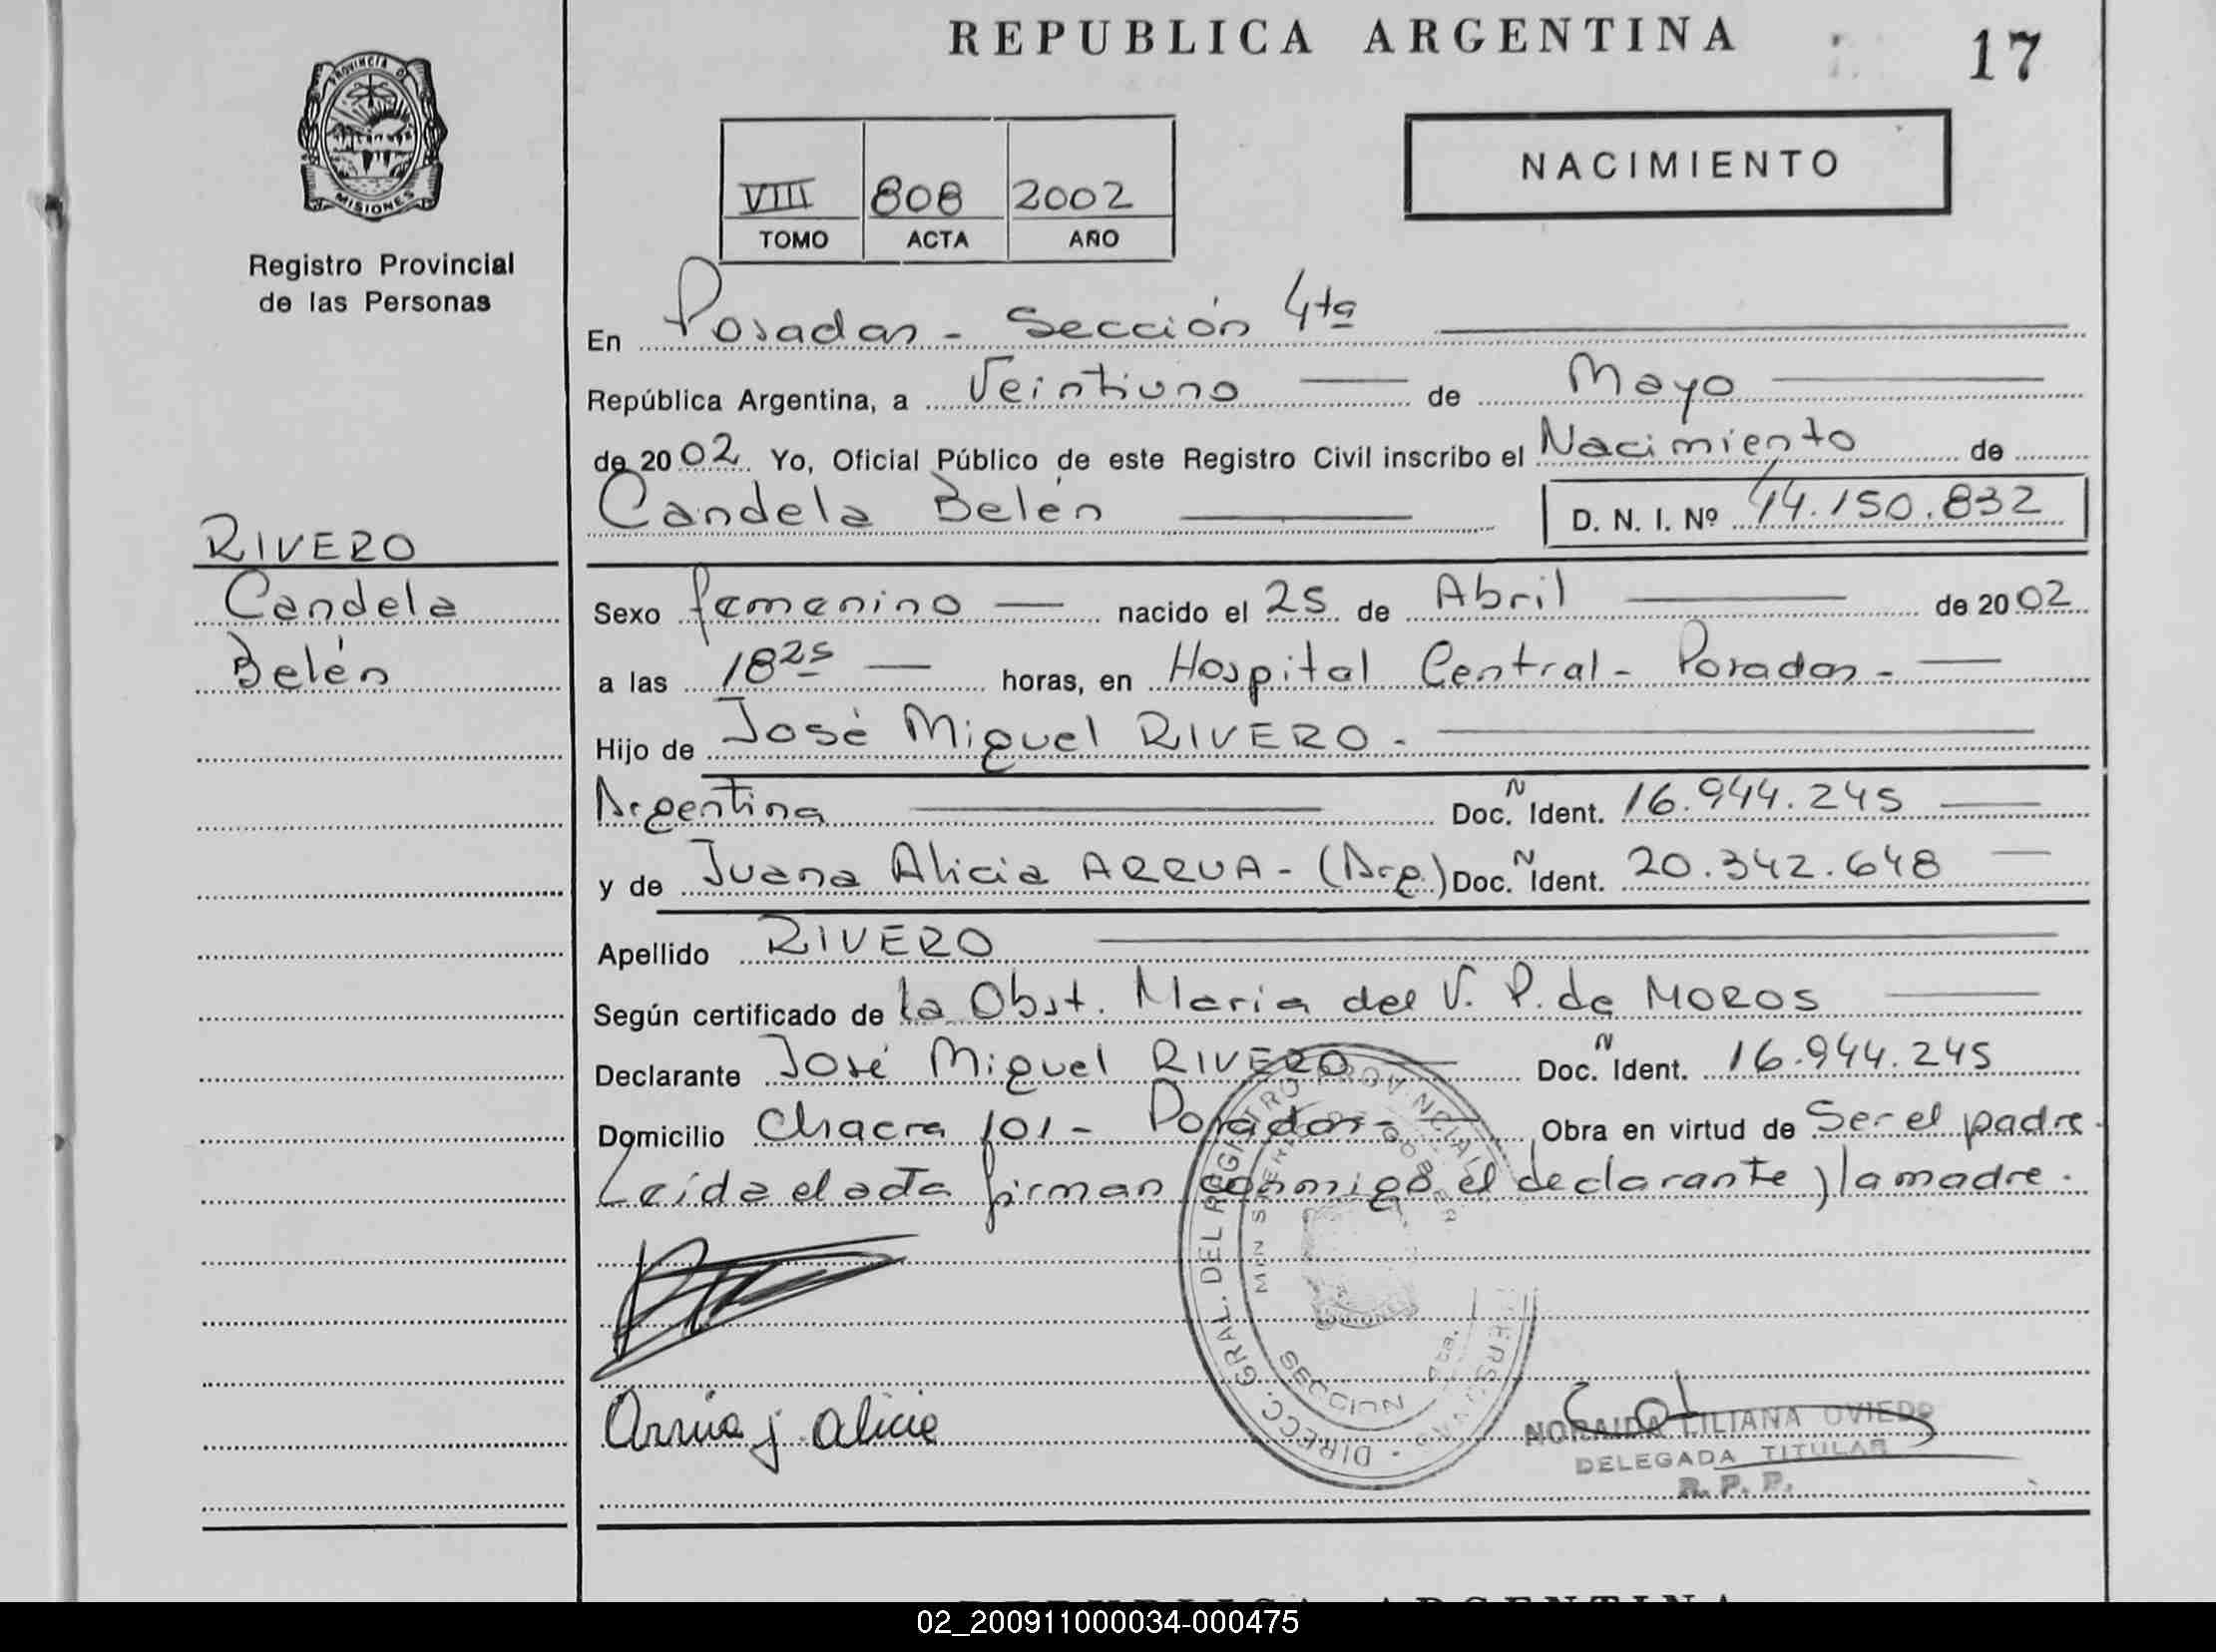 REPUBLICA ARGENTINA
17
PROVINCIA D
MISIONES
Registro Provincial
de las Personas
NACIMIENTO
VIII 808 2002
TOMO ACTA AÑO
En Posadas - Sección 4ta
República Argentina, a Veintiuno de Mayo
de 2002 Yo, Oficial Público de este Registro Civil inscribo el Nacimiento de
Candela Belén D. N. I. Nº 44.150.832
RIVERO
Candela
Belén
Sexo femenino nacido el 25 de Abril de 2002
a las 18 25 horas, en Hospital Central - Posadas -
Hijo de José Miguel RIVERO -
Argentina Doc. N Ident. 16.944.245
y de Juana Alicia ARRUA - (Arg.) Doc. N Ident. 20.342.648
Apellido RIVERO
Según certificado de la Obst. Maria del V. P. de MOROS
Declarante José Miguel RIVERO Doc. N Ident. 16.944.245
Domicilio Chacra 101 - Posadas - Obra en virtud de Ser el padre.
Leída el acta firman conmigo el declarante y la madre.
DIRECC. GRAL. DEL REGISTRO PROVINCIAL
SECCION 4ta.
Arrua j. alicia
NORAIDA LILIANA OVIEDO
DELEGADA TITULAR
R. P. P.
REPUBLICA ARGENTINA
02_200911000034-000475